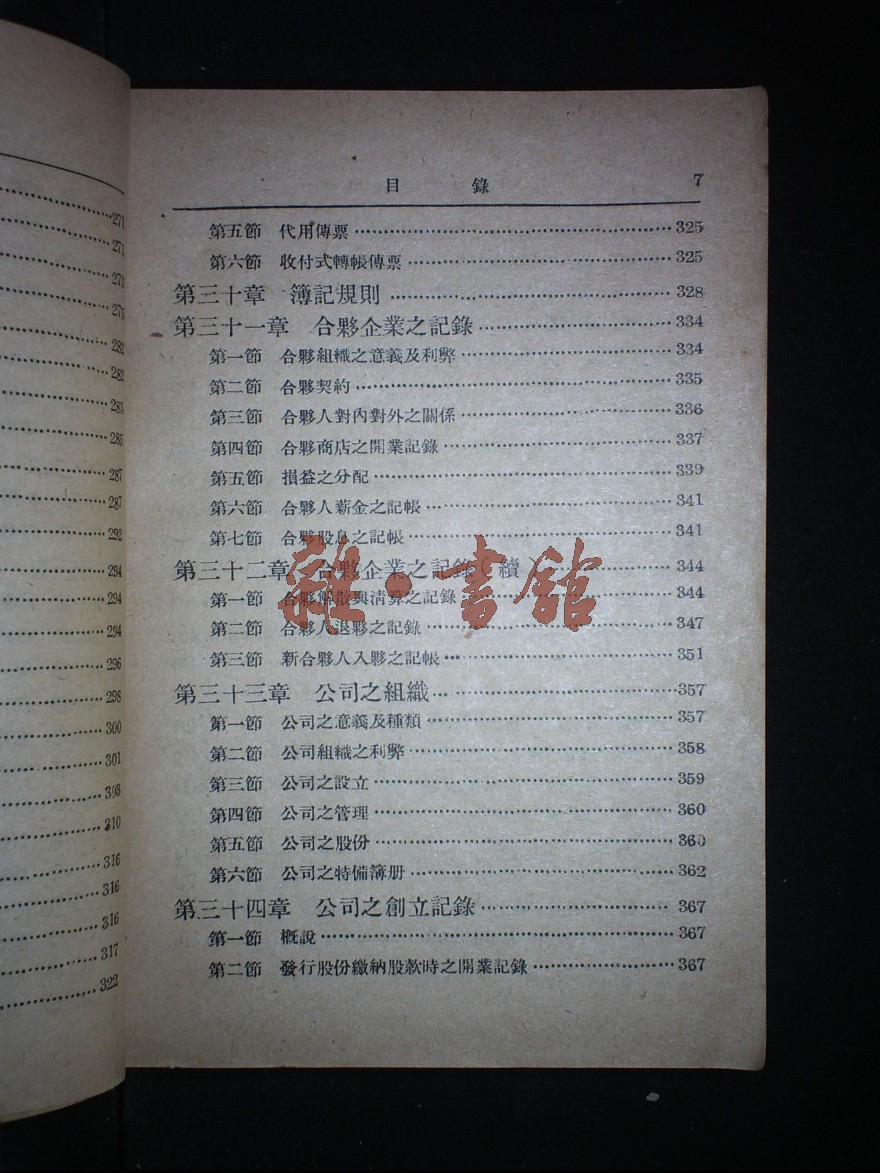 271
271
274
275
282
282
283
285
287
287
292
294
294
294
296
298
300
301
308
310
316
316
316
317
322
目 錄 7
第五節 代用傳票 325
第六節 收付式轉帳傳票 325
第三十章 簿記規則 328
第三十一章 合夥企業之記錄 334
第一節 合夥組織之意義及利弊 334
第二節 合夥契約 335
第三節 合夥人對內對外之關係 336
第四節 合夥商店之開業記錄 337
第五節 損益之分配 339
第六節 合夥人薪金之記帳 341
第七節 合夥股息之記帳 341
第三十二章 合夥企業之記錄(續) 344
第一節 合夥解散與清算之記錄 344
第二節 合夥人退夥之記錄 347
第三節 新合夥人入夥之記帳 351
第三十三章 公司之組織 357
第一節 公司之意義及種類 357
第二節 公司組織之利弊 358
第三節 公司之設立 359
第四節 公司之管理 360
第五節 公司之股份 360
第六節 公司之特備簿册 362
第三十四章 公司之創立記錄 367
第一節 概說 367
第二節 發行股份繳納股款時之開業記錄 367
雜·書館